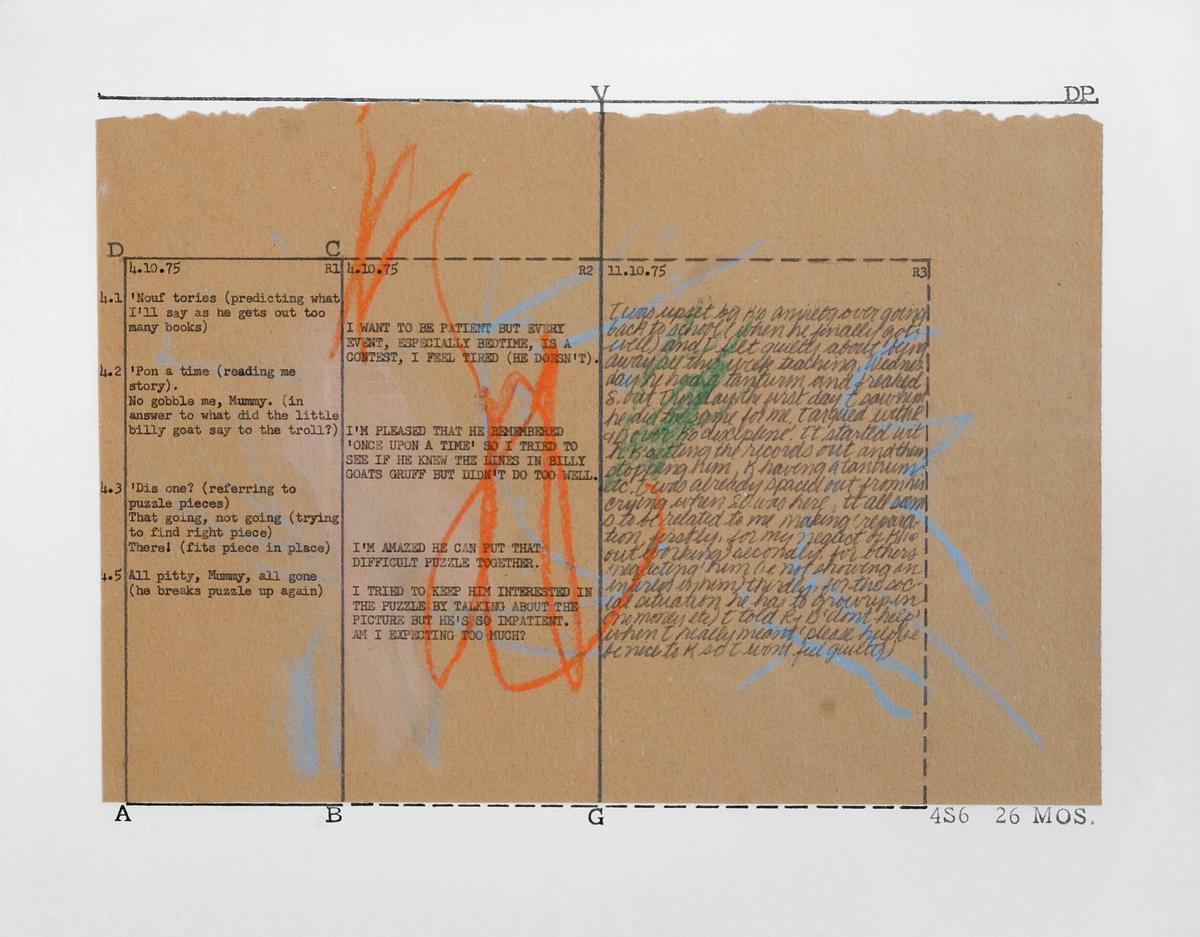 V DP.
D C
4.10.75 R1
4.1 'Nouf tories (predicting what
I'll say as he gets out too
many books)
4.2 'Pon a time (reading me
story).
No gobble me, Mummy. (in
answer to what did the little
billy goat say to the troll?)
4.3 'Dis one? (referring to
puzzle pieces)
That going, not going (trying
to find right piece)
There! (fits piece in place)
4.5 All pitty, Mummy, all gone
(he breaks puzzle up again)
4.10.75 R2
I WANT TO BE PATIENT BUT EVERY
EVENT, ESPECIALLY BEDTIME, IS A
CONTEST, I FEEL TIRED (HE DOESN'T).
I'M PLEASED THAT HE REMEMBERED
'ONCE UPON A TIME' SO I TRIED TO
SEE IF HE KNEW THE LINES IN BILLY
GOATS GRUFF BUT DIDN'T DO TOO WELL.
I'M AMAZED HE CAN PUT THAT
DIFFICULT PUZZLE TOGETHER.
I TRIED TO KEEP HIM INTERESTED IN
THE PUZZLE BY TALKING ABOUT THE
PICTURE BUT HE'S SO IMPATIENT.
AM I EXPECTING TOO MUCH?
11.10.75 R3
I was upset by K's anxiety over going
back to school (when he finally got
well) and I felt guilty about being
away all this week teaching. Wednes
day he had a tanturm and freaked
S. out Thursday the first day I saw him
he did the same for me I argued withe
over K's discipline. It started wit
h K getting the records out and them
stopping him, K having a tantrum
etc. I was already spaced out from his
crying when SD was here, it all sem
s to be related to me making repara-
tion, firstly, for my neglect of K ie
out working, secondly, for others
neglecting him (ie not showing an
interest in him) thirdly, for the soc-
ial situation he has to grow up in
(no money etc) I told R, B 'dont help'
when I really meant 'please help (ie
be nice to K so I wont feel guilty)'
A B G 4S6 26 MOS.